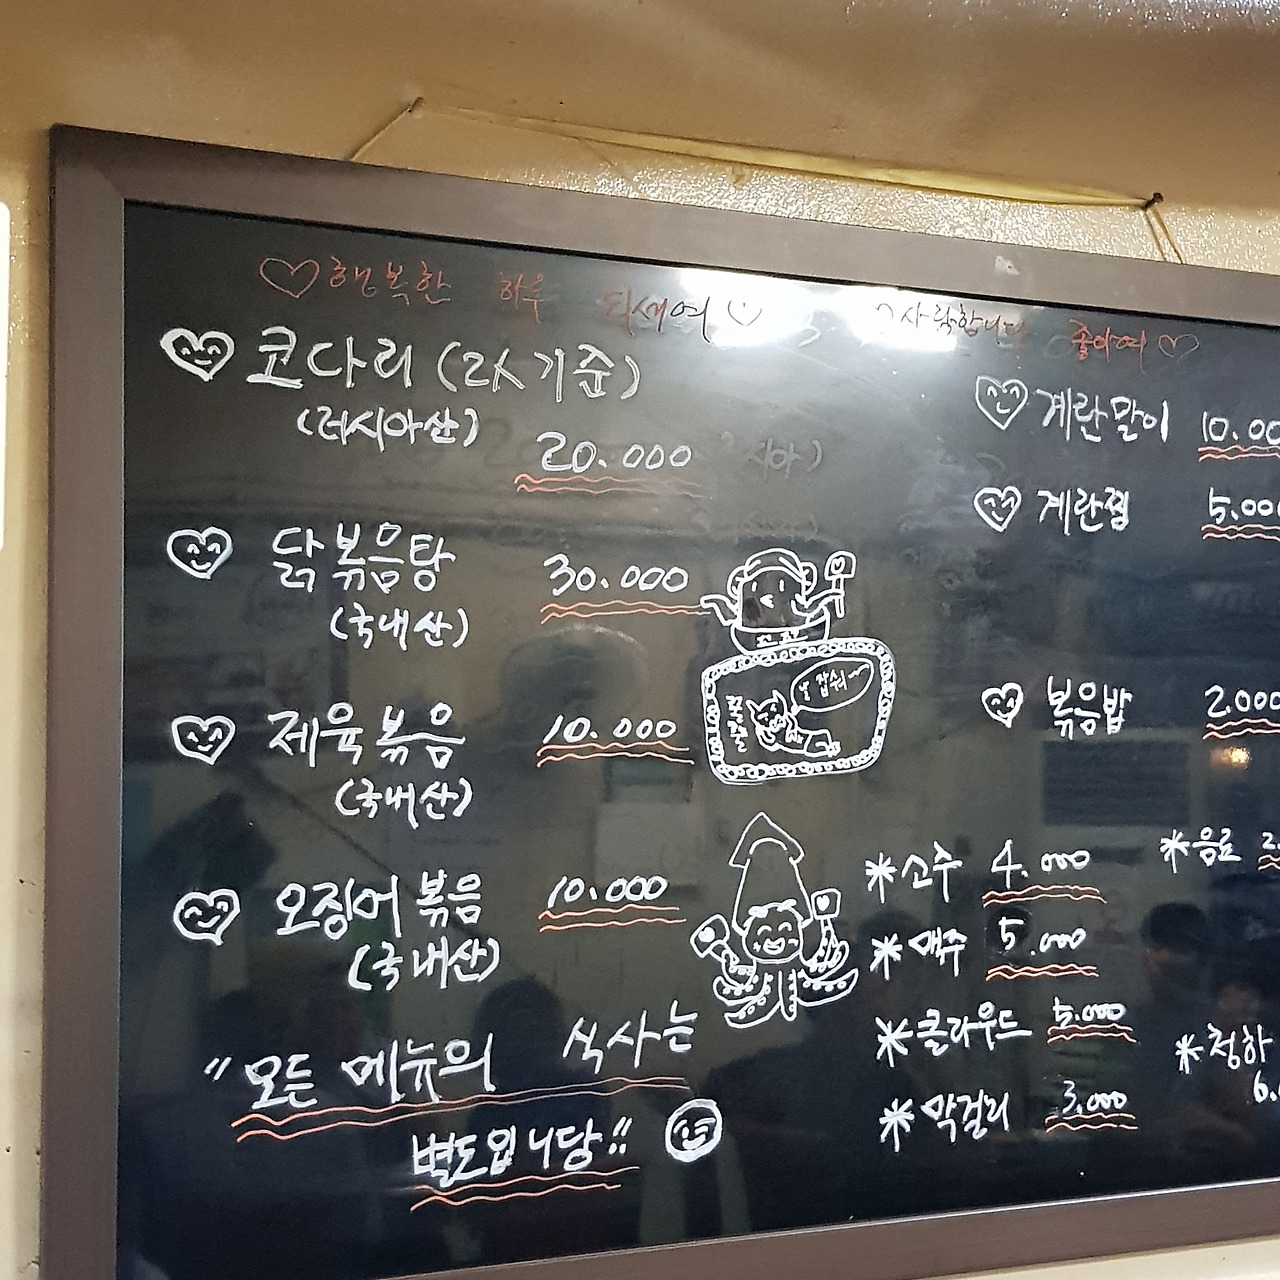 ♡행복한 하루 되세여 사랑합니다 좋아여♡
코다리 (2人기준)
(러시아산)
20.000
닭볶음탕 30.000
(국내산)
제육볶음 10.000
(국내산)
오징어볶음 10.000
(국내산)
"모든 메뉴의 식사는
별도입니당"
날 잡숴~
계란말이 10.00
계란찜 5.000
볶음밥 2.000
*소주 4.000
*맥주 5.000
*클라우드 5.000
*막걸리 3.000
*음료 2.
*청하
6.